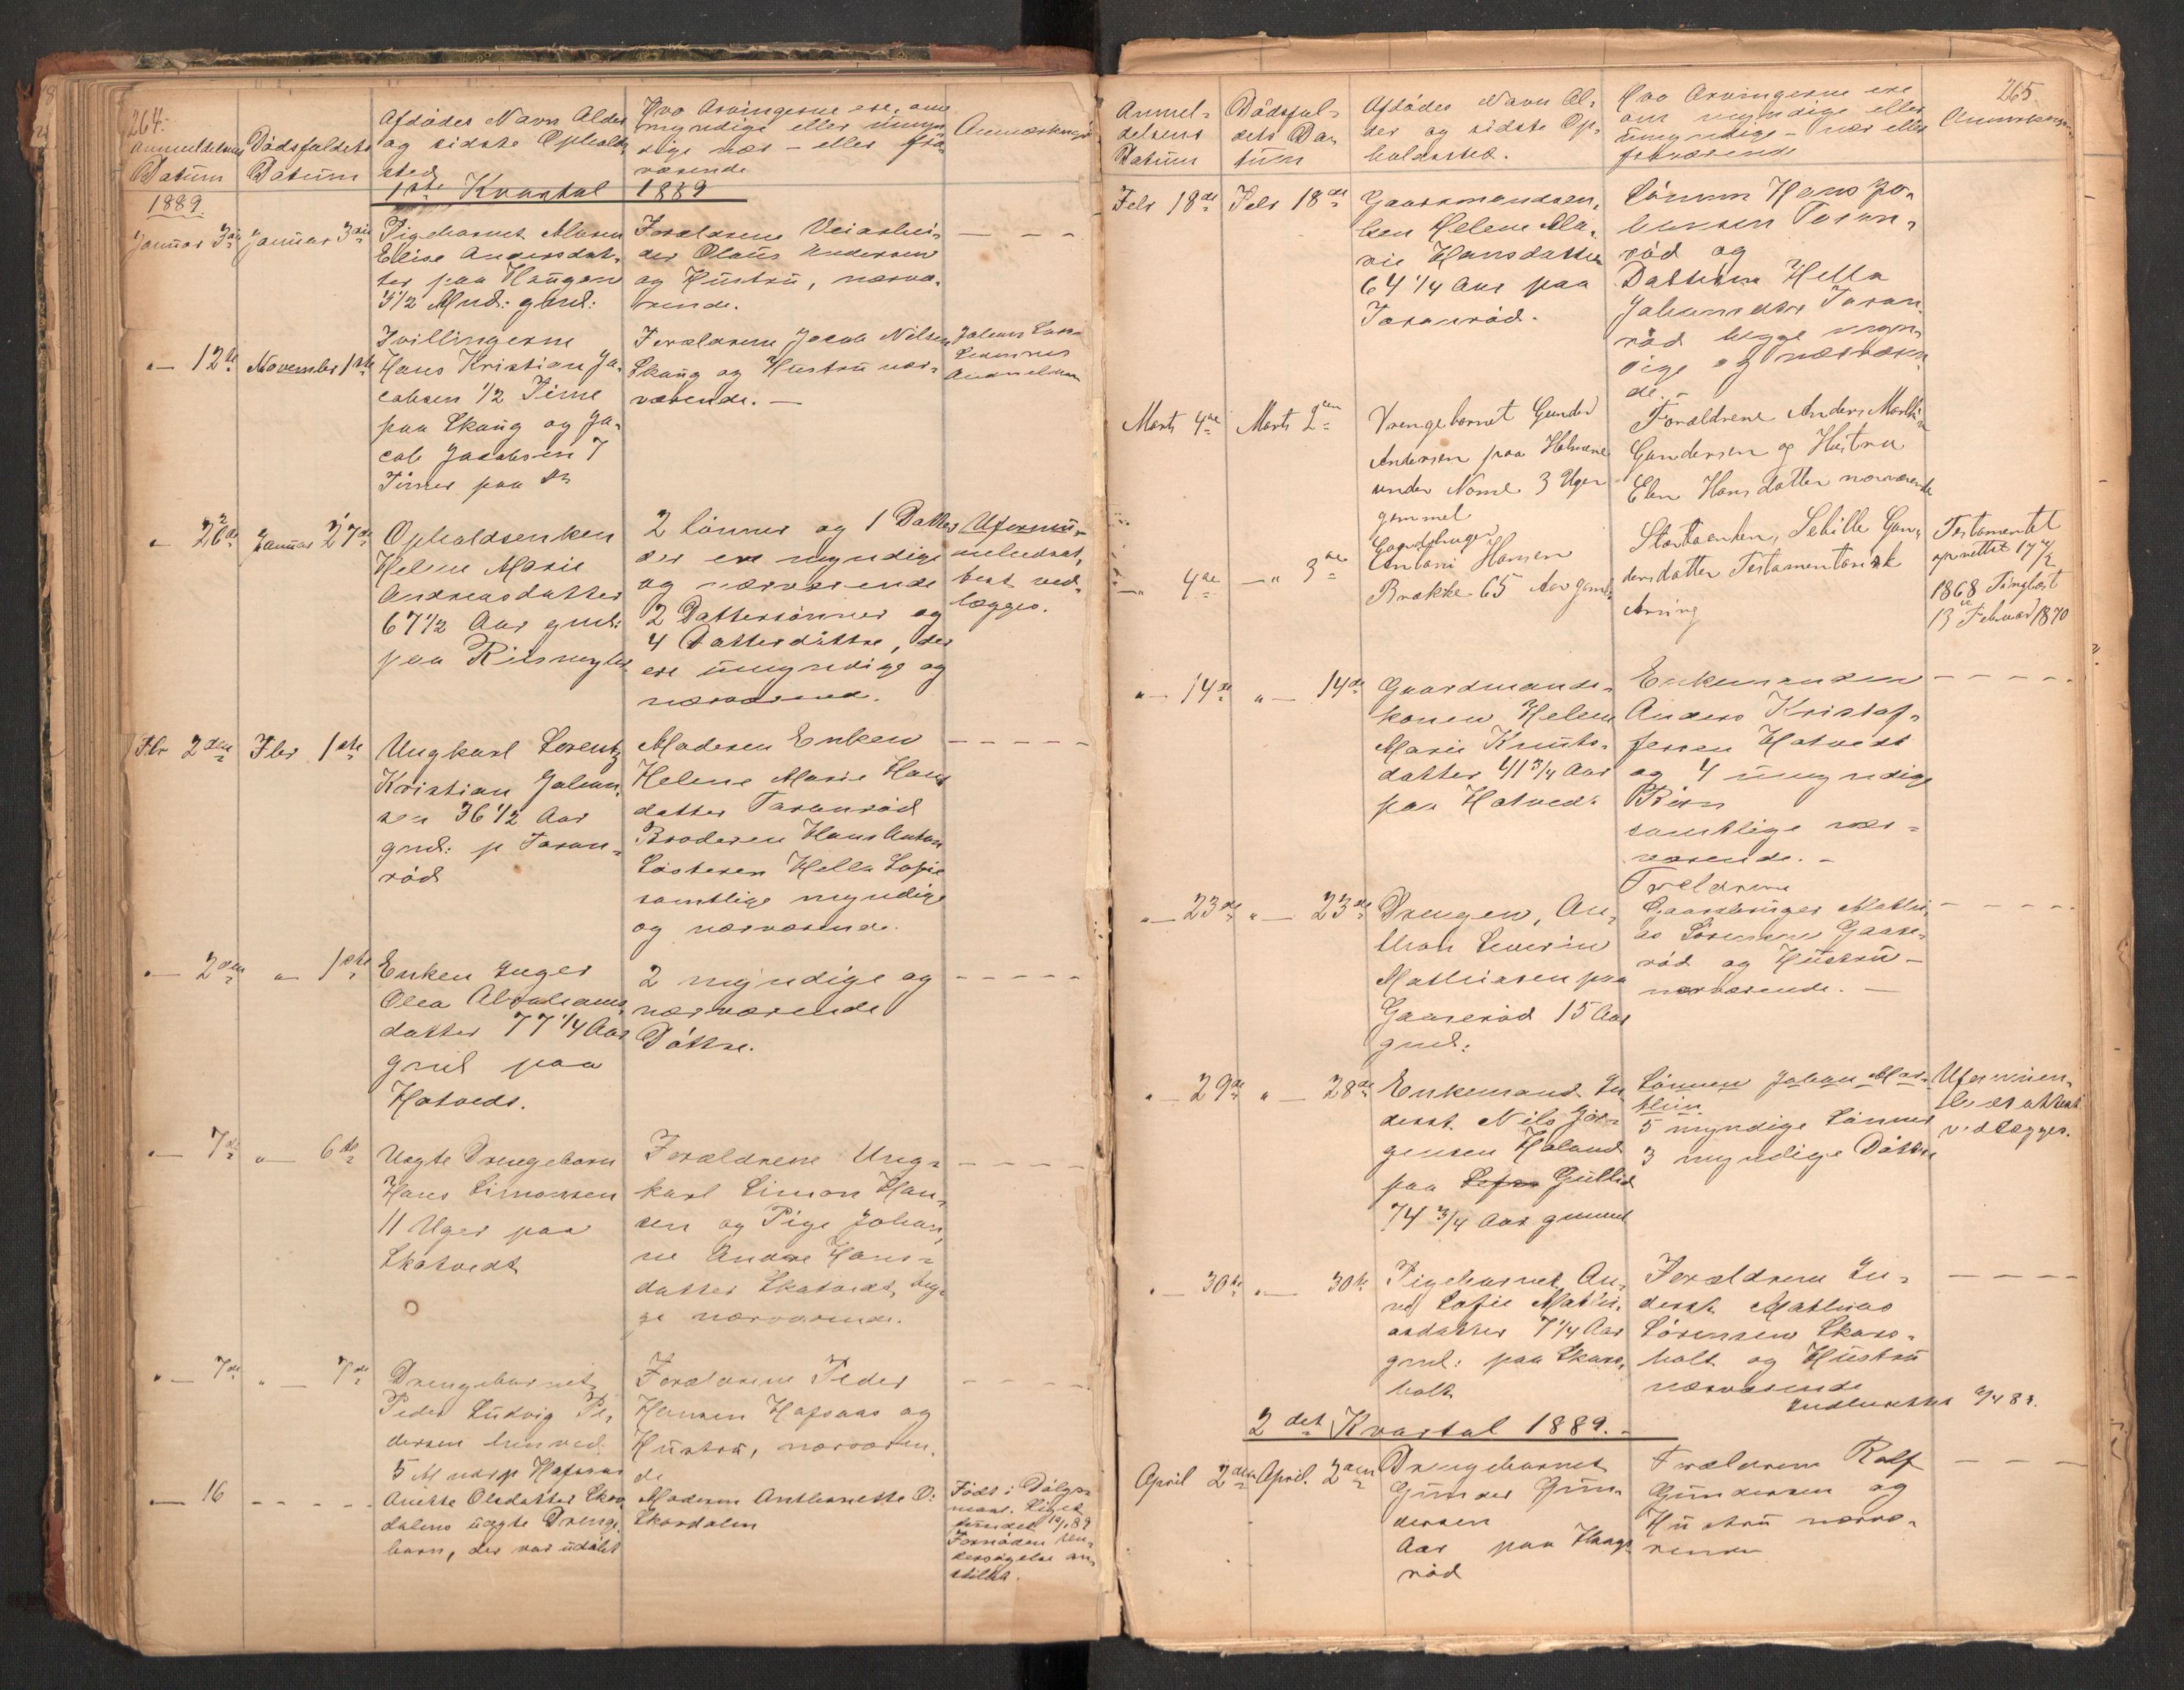 264.
Anmeldelsens
Datum
Dödsfaldets
Datum
Afdödes Navn Alder
og sidste Ophold
sted
Hvo Arvingerne ere, om
myndige eller umyn
dige nær - eller fra
værende
Anmærkning
1ste Kvartal 1889
1889.
Januar 3die
Januar 3die
Pigebarnet Maren
Elise Andersdat-
ter paa Haugen
3 1/2 Mnd: gml:
Forældrene Veiarbei-
der Olaus Andersen
og Hustru, nærvæ-
rende.
— — —
"— 12te
November 1ste
Tvillingerne
Hans Kristian Ja-
cobsen 1/2 Time
paa Skaug og Ja-
cob Jacobsen 7
Timer paa
Forældrene Jacob Nilsen
Skaug og Hustru nær-
værende. —
Johans
Anmeldelsen
"— 26de
Januar 27de
Opholdsenken
Helene Marie
Andreasdatter
67 1/2 Aar gml:
paa
2 Sönner og 1 Datter
der ere myndige
og nærværende
2 Dattersönner og
4 Datterdöttre, der
ere umyndige og
nærværende.
Uformu-
enhedsat-
test ved-
lægges.
Fbr 2den
Fbr 1ste
Ungkarl Lorentz
Kristian Johan-
sen 36 1/2 Aar
gml: p Taran-
röd
Moderen Enken
Helene Marie Hans
datter Taranröd
Broderen Hans Anton
Sösteren Hella Sofie
samtlige myndige
og nærværende.
— — — — —
"— 2den
"— 1ste
Enken Inger
Olea Abrahams
datter 77 1/4 Aar
gml paa
Hotvedt.
2 myndige og
nærværende
Döttre.
— — — — —
"— 7de
"— 6de
Uægte Drengebarn
Hans Simonsen
11 Uger paa
Skatvedt
Forældrene Ung-
karl Simon Han-
sen og Pige Johan-
ne Andrea Hans-
datter Skatvedt, beg-
ge nærværende.
— — — — —
"— 7de
"— 7de
Drengebarnet
Peder Ludvig Pe-
dersen henved
5 Mndr p Hafsaas
Forældrene Peder
Hansen Hafsaas og
Hustru, nærværen-
de
— — — — —
"— 16
— — — —
Anette Olsdatter Skor
dalens uægte Drenge-
barn, der var udöbt
Moderen Anthonette O:
Skordalen
Födt i Dölgs-
maal. Liget
fundet
Fornöden Un-
dersögelse an-
stillet.
265.
Anmel-
delsens
Datum
Dödsfal-
dets Da-
tum
Afdödes Navn Al-
der og sidste Op-
holdssted.
Hvo Arvingerne ere
om myndige eller
umyndige - nær eller
fraværende
Anmærkning
Feb 18de
Feb 18de
Gaardmandsen-
ken Helene Ma-
rie Hansdatter
64 1/4 Aar paa
Taranröd.
Sönnen Hans Jo-
hansen Taran-
röd og
Datteren Hella
Johansdtr Taran-
röd begge myn-
dige og nærværen-
de. -
Marts 4de
Marts 2den
Drengebarnet Gunder
Andersen paa Holmene
under Nomel 3 Uger
gammel
Forældrene Anders Martin
Gundersen og Hustru
Elen Hansdatter nærværende
"— 4de
—" 3de
Gaardbruger
Antoni Hansen
Brække 65 Aar gaml.
Sibille Gun-
dersdatter Testamentarisk
Arving
Testamentet
oprettet 17/2
1868 Tinglæst
13de Februar 1870
"— 14de
"— 14de
Gaardmands-
konen Helene
Marie Knuts-
datter 41 3/4 Aar
paa Hotvedt
Enkemanden
Anders Kristof-
fersen Hotvedt
og 4 umyndige
Börn
samtlige nær-
værende. -
— — — — —
"— 23de
"— 23de
Drengen, An-
thon Severin
Mathiasen paa
Gaaseröd 15 Aar
gml:
Forældrene
Gaardbruger Mathi-
as Sörensen Gaase-
röd og Hustru -
nærværende. —
— — — — —
"— 29de
"— 28de
Enkemand In-
derst. Nils Jör-
gensen Holand
paa Gullid
74 3/4 Aar gammel
Sönnen Johan Mar-
thin
5 myndige Sönner
3 myndige Döttre
Uformuen-
hedsattest
vedlægges.
"— 30te
"— 30te
Pigebarnet An-
na Sofie Mathi-
asdatter 7 1/4 Aar
gml: paa Skars-
holt
Forældrene In-
derst. Mathias
Sörensen Skars-
holt og Hustru
nærværende
— — — —
Indberettet 2/4 89.
2det Kvartal 1889. -
April 2den
April. 2den
Drengebarnet
Gunder Gun-
dersen
Aar paa Haug-
röd
Forældrene Rolf
Gundersen og
Hustru nærvæ-
rende
— — — —